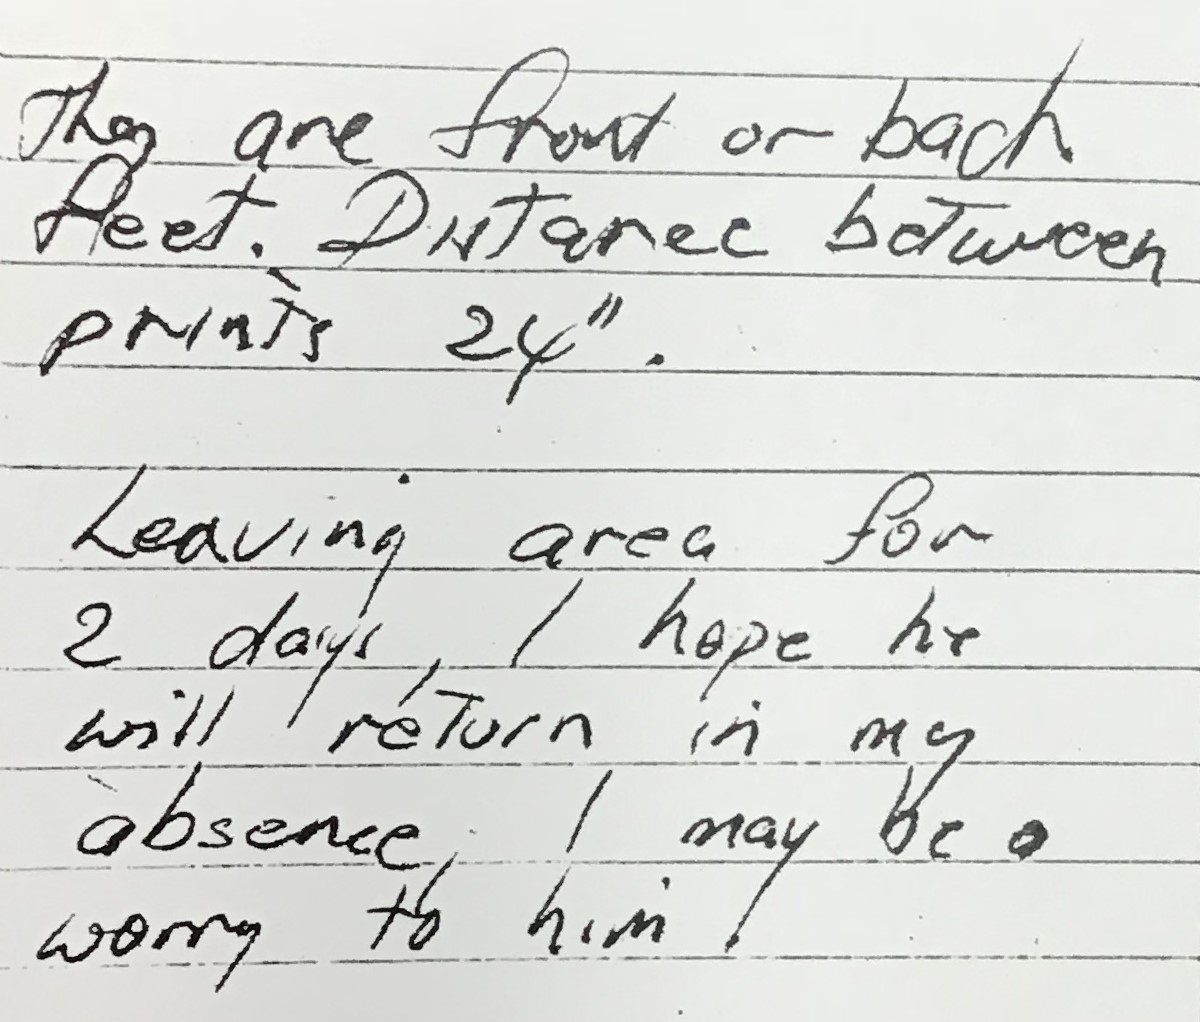 They are front or back
feet. Distance between
prints 24".
Leaving area for
2 days, I hope he
will return in my
absence, I may be a
worry to him!